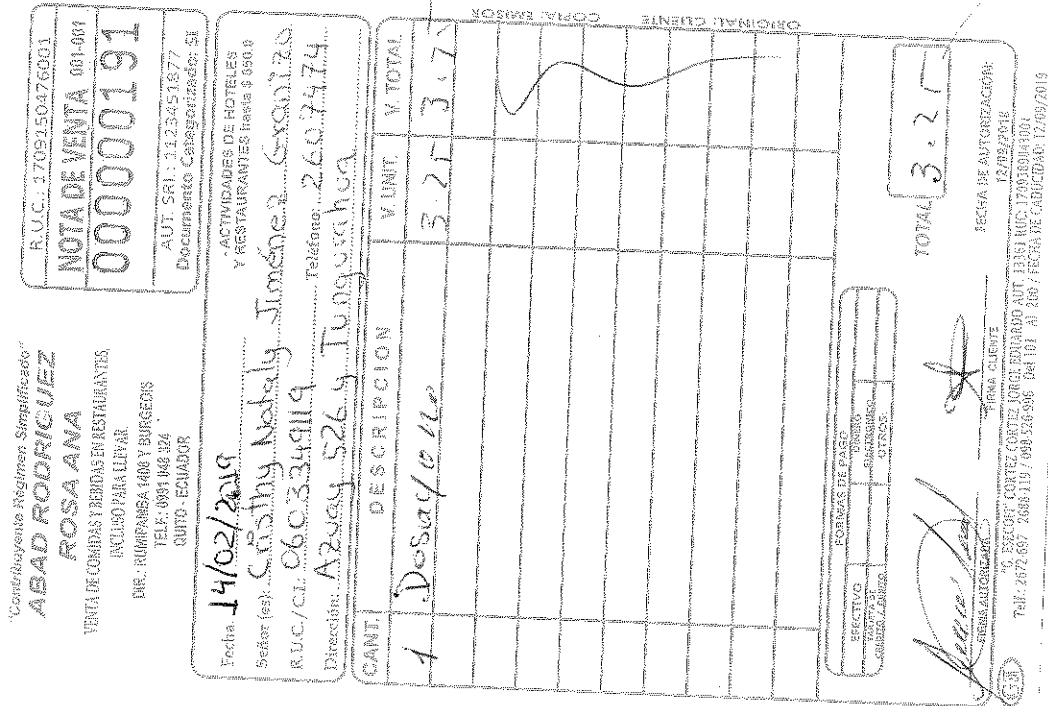 "Contribuyente Régimen Simplificado"
ABAD RODRIGUEZ
ROSA ANA
VENTA DE COMIDAS Y BEBIDAS EN RESTAURANTES,
INCLUSO PARA LLEVAR
DIR.: RUMIPAMBA 1408 Y BURGEOIS
TELF.: 0991 048 124
QUITO - ECUADOR
R.U.C.: 1709150476001
NOTA DE VENTA 001-001
000000191
AUT. SRI.: 1123451877
Documento Categorizado: SI
Fecha: 14/02/2019
- ACTIVIDADES DE HOTELES
Y RESTAURANTES hasta $ 650.0
Señor (es): Cristhy Nataly Jiménez Granizo
R.U.C./C.I.: 0603349119 Teléfono: 2607474
Dirección: Azuay 526 y Tungurahua
CANT. DESCRIPCION V. UNIT. V. TOTAL
1 Desayuno 3.25 3.25
ORIGINAL: CLIENTE COPIA: EMISOR
FORMAS DE PAGO
EFECTIVO DINERO ELECTRONICO
TARJETA DE CREDITO / DEBITO OTROS:
TOTAL 3.25
FIRMA AUTORIZADA FIRMA CLIENTE
FECHA DE AUTORIZACIÓN:
12/09/2018
"G. ESCORT" CORTEZ CORTEZ JORGE EDUARDO AUT. 13351 RUC: 1709189043001
Telf.: 2672-697 2688-119 / 098-520-996 Del 101 Al 200 / FECHA DE CADUCIDAD: 12/09/2019